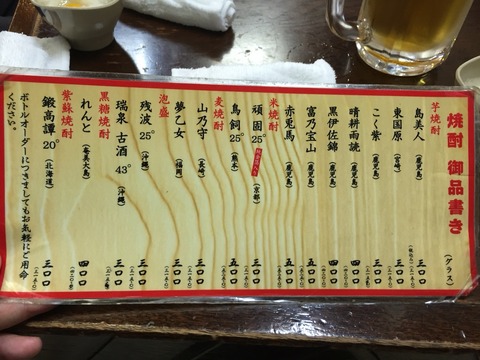 焼酎 御品書き (グラス)
芋焼酎
島美人 (鹿児島) 三〇〇
東国原 (宮崎) 三〇〇
こく紫 (鹿児島) 三〇〇
晴耕雨読 (鹿児島) 四〇〇
黒伊佐錦 (鹿児島) 四〇〇
富乃宝山 (鹿児島) 五〇〇
赤兎馬 (鹿児島) 五〇〇
米焼酎
頑固 25° (京都) 三〇〇
鳥飼 25° (熊本) 五〇〇
麦焼酎
山乃守 (長崎) 三〇〇
夢乙女 (福岡) 三〇〇
泡盛
残波 25° (沖縄) 三〇〇
瑞泉 古酒 43° (沖縄) 三〇〇
黒糖焼酎
れんと (奄美大島) 四〇〇
紫蘇焼酎
鍛高譚 20° (北海道) 三〇〇
ボトルオーダーにつきましてもお気軽にご用命
ください。